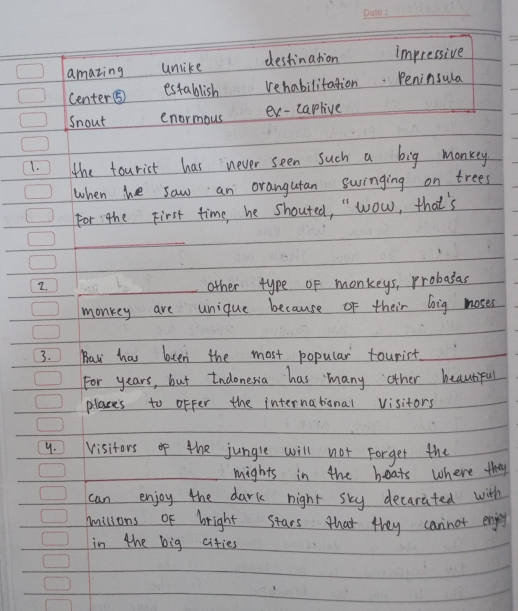 Date:
amazing unike destination impressive
center ⑤ establish rehabilitation . Peninsula
Snout enormous ex-captive
1. the tourist has never seen such a big monkey
when he saw an orangutan swinging on trees
For the First time, he shouted, "wow, that's
2. other type of monkeys, probasas
monkey are unique because of their big noses
3. Bali has been the most popular tourist
For years, but Indonesia has many other beautiful
places to offer the international visitors
4. Visitors of the jungle will not Forget the
mights in the boats where they
can enjoy the dark night sky decarated with
millions of bright stars that they cannot enjoy
in the big cities